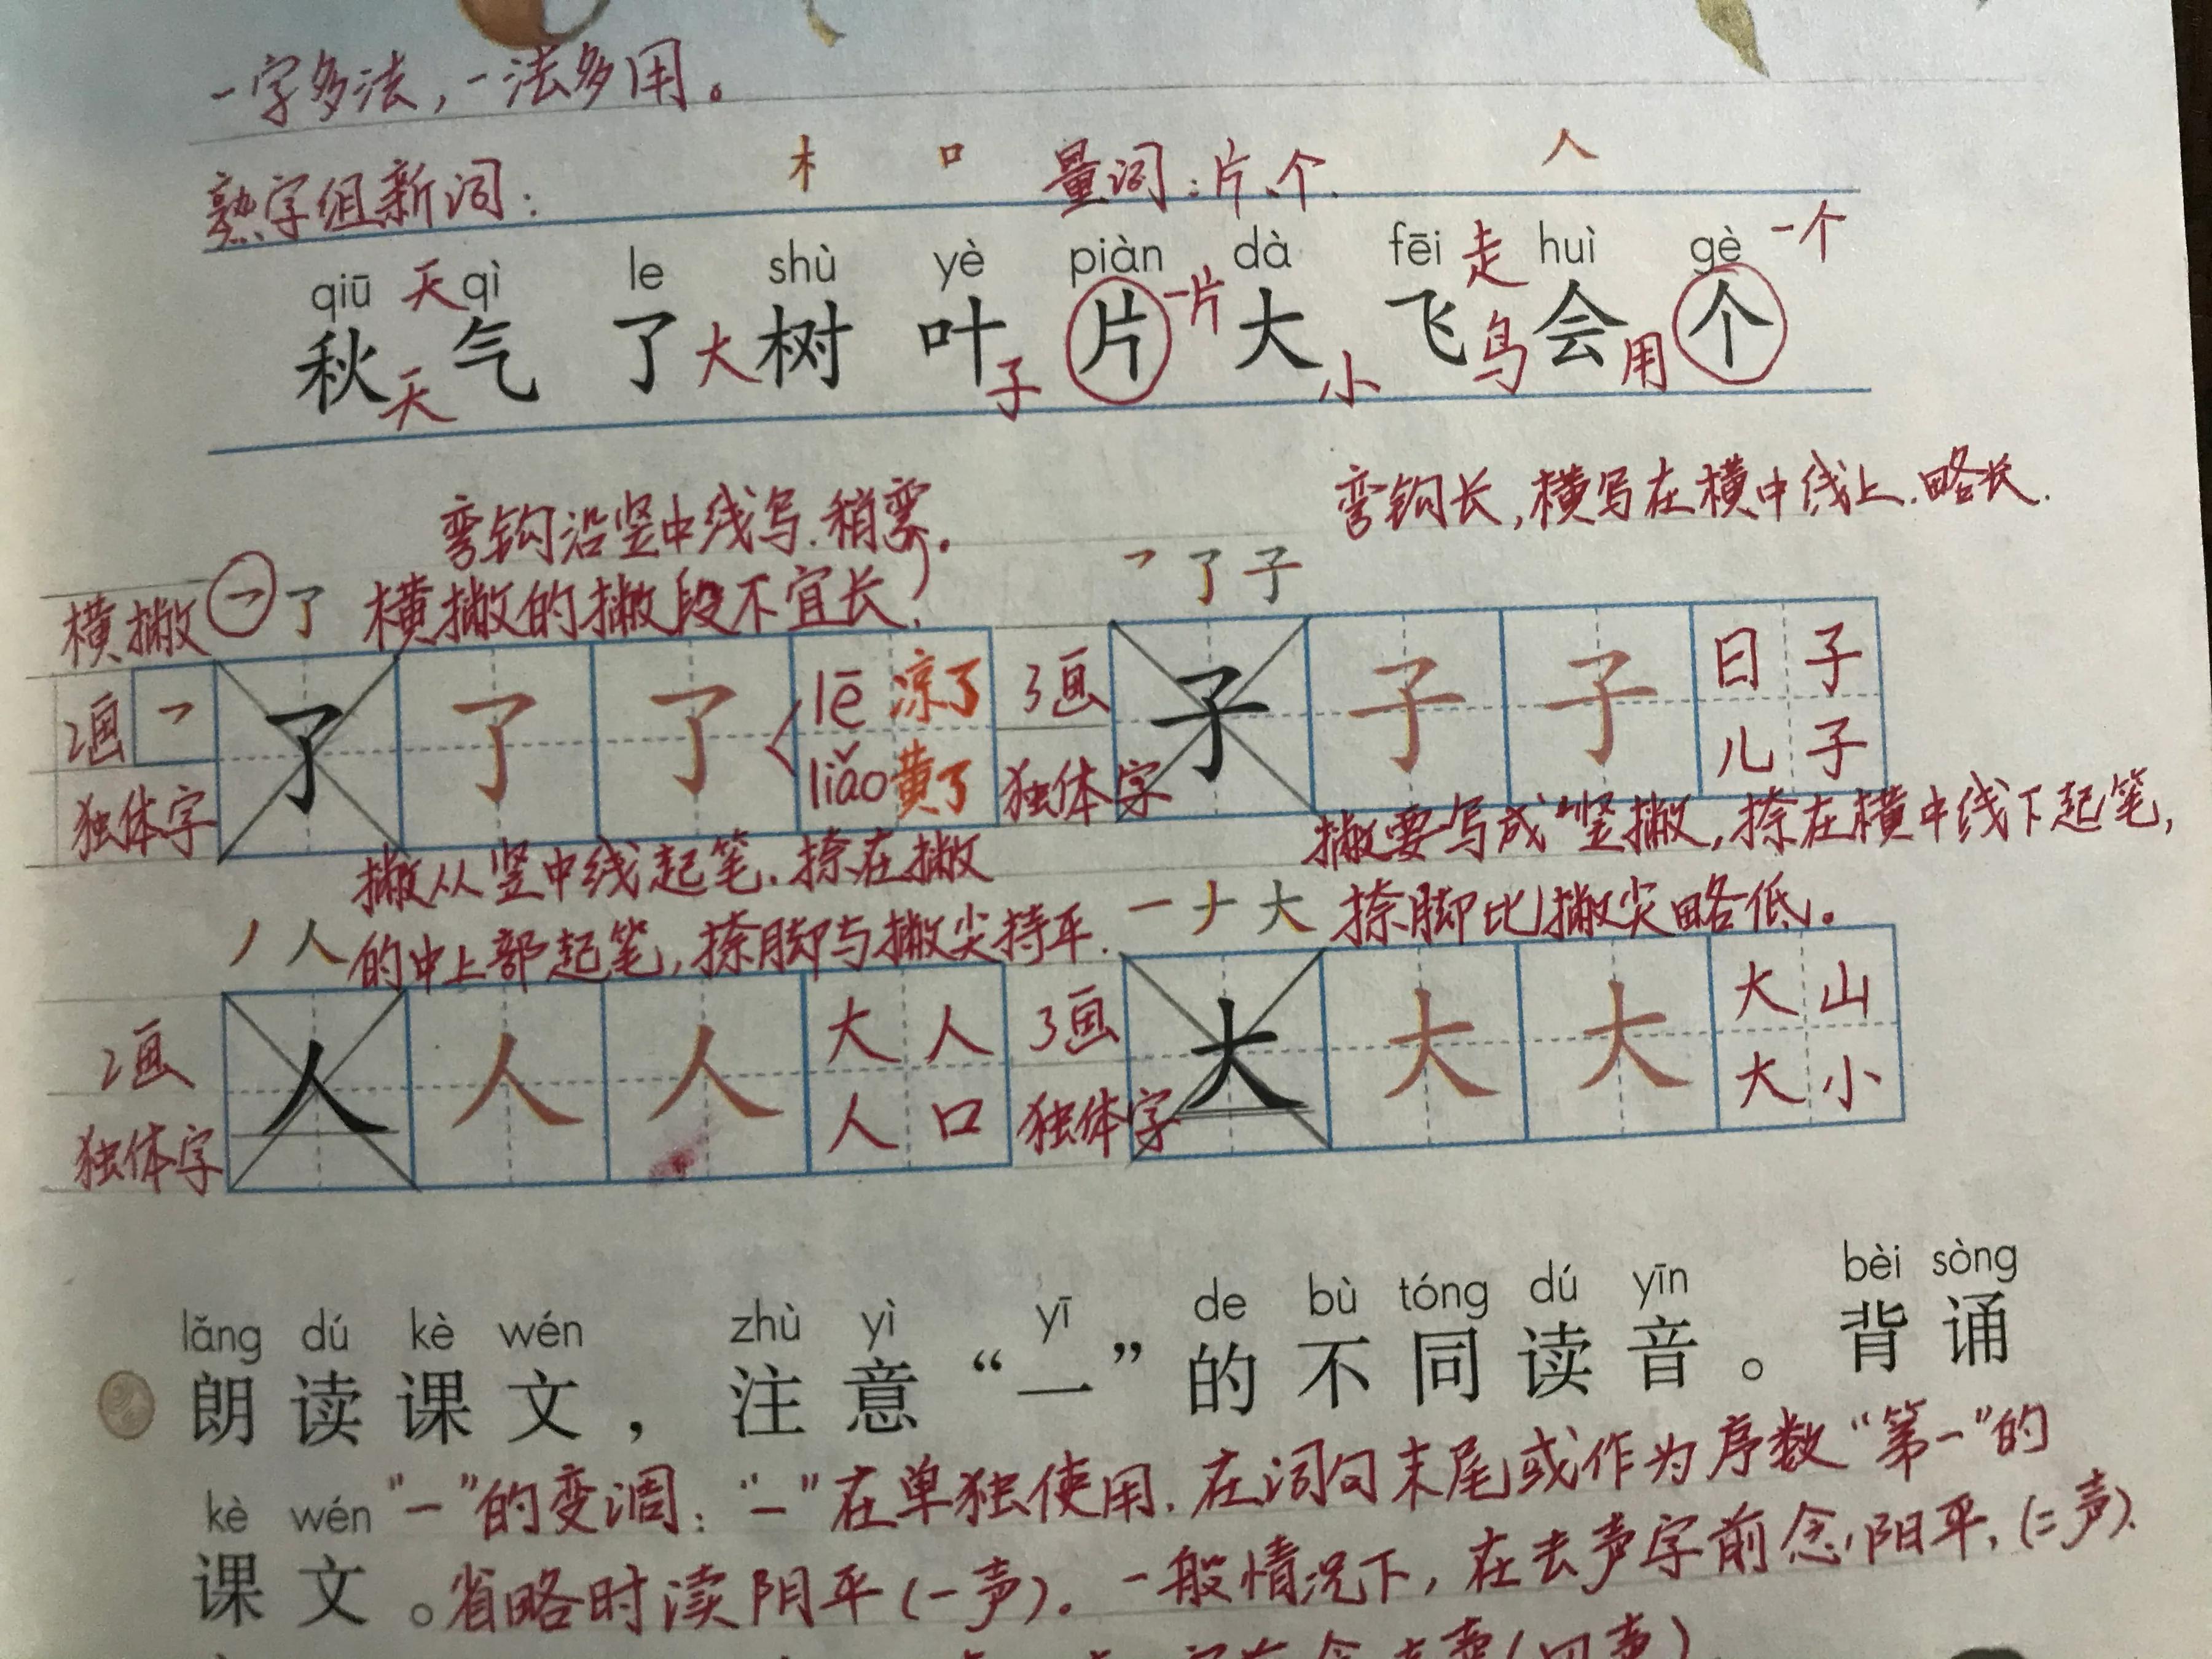 一字多法，一法多用。
木 口 人
熟字组新词： 量词：片、个.
qiū 天 qì le shù yè piàn dà fēi 走 huì gè 一个
秋天 气 了 大树 叶子 片 一片 大小 飞鸟 会用 个
弯钩沿竖中线写.稍弯. 弯钩长,横写在横中线上.略长.
横撇 ㇇ 了 横撇的撇段不宜长. ㇇ 了 子
2画 ㇇ 了 了 了 lē 凉了 3画 子 子 子 日子
独体字 liǎo 黄了 独体字 儿子
撇从竖中线起笔.捺在撇 撇要写成“竖撇,捺在横中线下起笔,
丿 人 的中上部起笔,捺脚与撇尖持平. 一 ナ 大 捺脚比撇尖略低。
2画 人 人 人 大人 3画 大 大 大 大山
独体字 人口 独体字 大小
lǎng dú kè wén zhù yì yī de bù tóng dú yīn bèi sòng
朗读课文，注意“一”的不同读音。背诵
kè wén “一”的变调：“一”在单独使用.在词句末尾或作为序数“第一”的
课文。省略时渎阴平(一声)。一般情况下，在去声字前念阳平,(二声).
(四声)